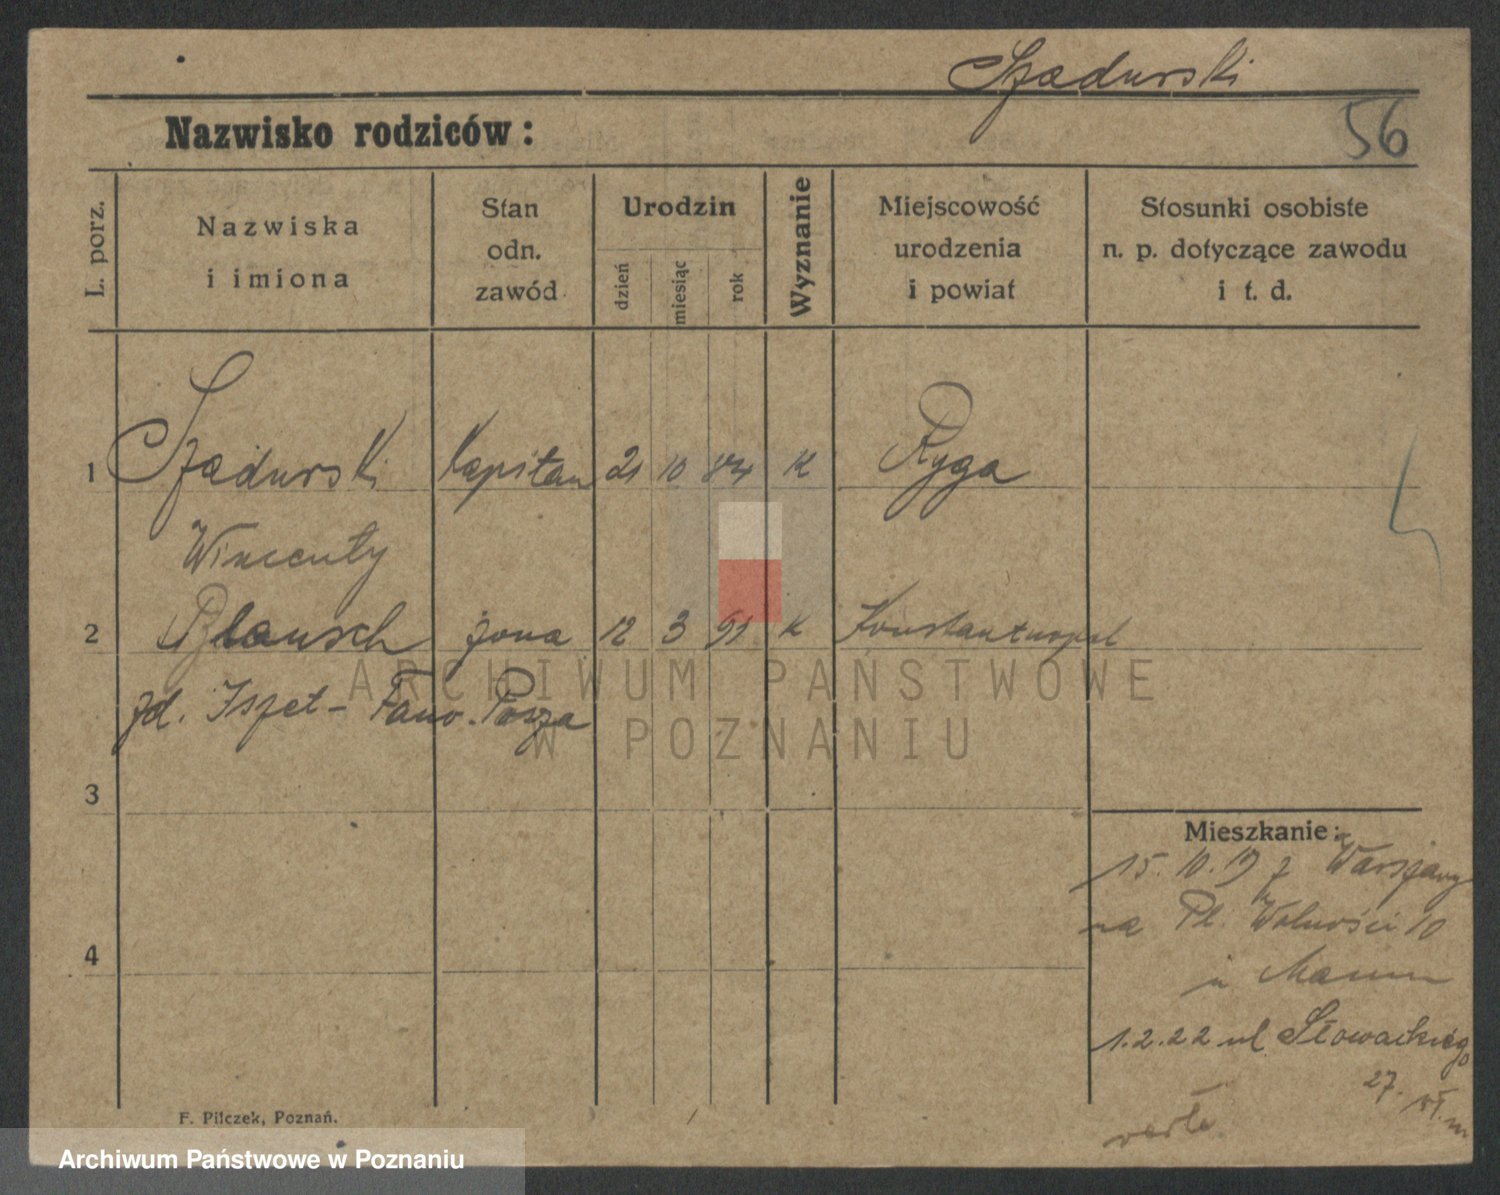 Szadurski
56
Nazwisko rodziców:
L. porz.
Nazwiska
i imiona
Stan
odn.
zawód
Urodzin
dzień
miesiąc
rok
Wyznanie
Miejscowość
urodzenia
i powiat
Stosunki osobiste
n. p. dotyczące zawodu
i t. d.
1 Szadurski Kapitan 21 10 84 K Ryga
Wincenty
2 żona 12 3 91 K Konstantinopol
zd. Iszet - Pasza
3
4
Mieszkanie:
15.10.19 z Warszawy
na Pl. Wolności 10
u
1.2.22 ul. Słowackiego
27. wł. m
F. Pilczek, Poznań.
ARCHIWUM PAŃSTWOWE
W POZNANIU
Archiwum Państwowe w Poznaniu